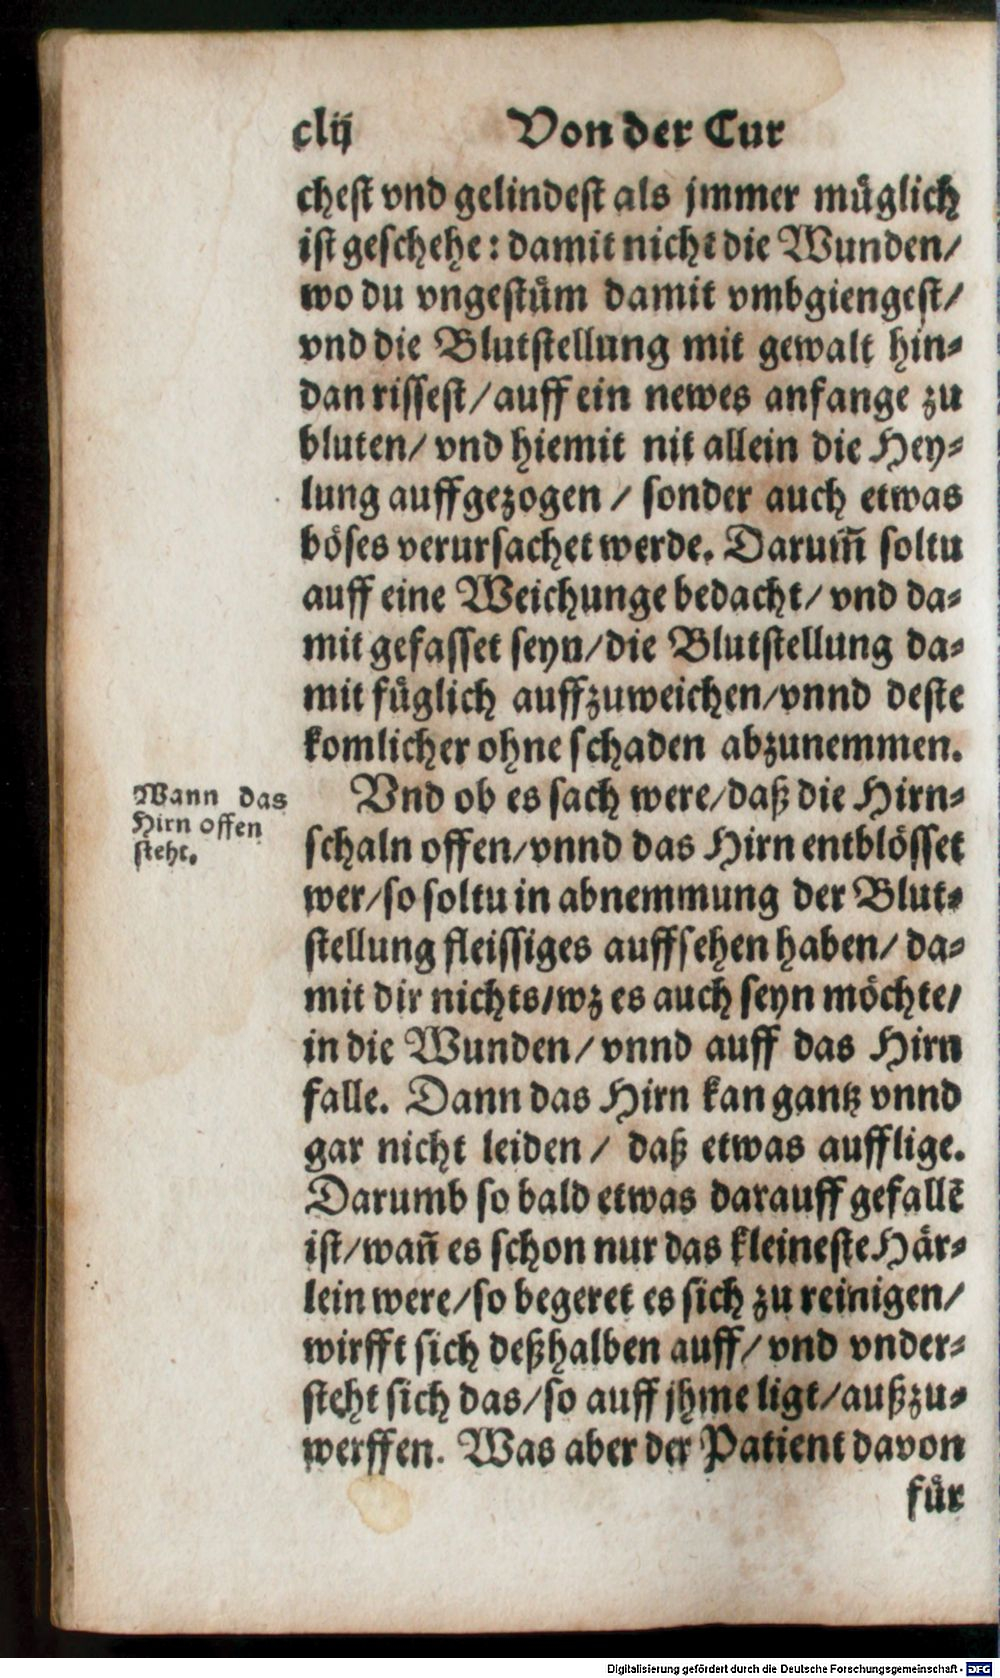 clij Von der Cur
chest vnd gelindest als jmmer müglich
ist geschehe: damit nicht die Wunden/
wo du vngestüm damit vmbgiengest/
vnd die Blutstellung mit gewalt hin-
dan rissest/ auff ein newes anfange zu
bluten/ vnd hiemit nit allein die Hey-
lung auffgezogen / sonder auch etwas
böses verursachet werde. Darum̃ soltu
auff eine Weichunge bedacht/ vnd da-
mit gefasset seyn/ die Blutstellung da-
mit füglich auffzuweichen/ vnnd deste
komlicher ohne schaden abzunemmen.
Wann das
Hirn offen
steht.
Vnd ob es sach were/ daß die Hirn-
schaln offen/ vnnd das Hirn entblösset
wer/ so soltu in abnemmung der Blut-
stellung fleissiges auffsehen haben/ da-
mit dir nichts/ wz es auch seyn möchte/
in die Wunden/ vnnd auff das Hirn
falle. Dann das Hirn kan gantz vnnd
gar nicht leiden / daß etwas aufflige.
Darumb so bald etwas darauff gefallẽ
ist/ wañ es schon nur das kleineste Här-
lein were/ so begeret es sich zu reinigen/
wirfft sich deßhalben auff/ vnd vnder-
steht sich das/ so auff jhme ligt/ außzu-
werffen. Was aber der Patient davon
für
Digitalisierung gefördert durch die Deutsche Forschungsgemeinschaft - DFG